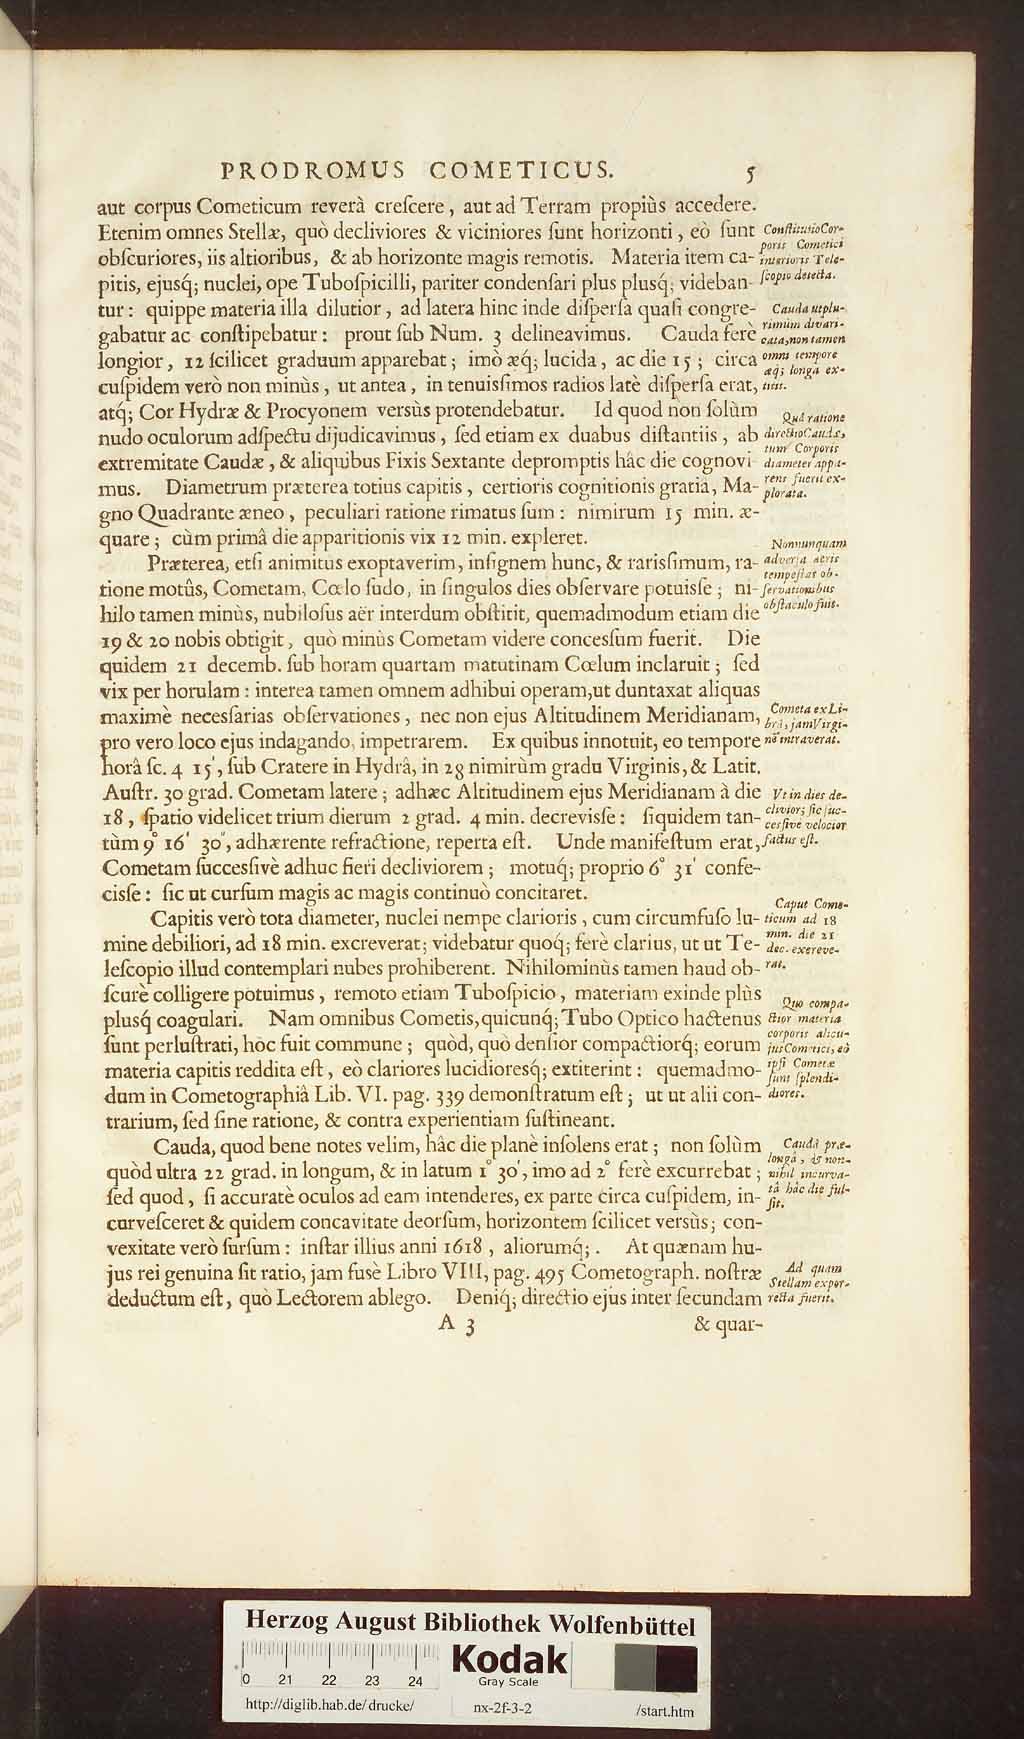 PRODROMUS COMETICUS. 5
aut corpus Cometicum reverà creſcere, aut ad Terram propiùs accedere.
Etenim omnes Stellæ, quò decliviores & viciniores ſunt horizonti, eò ſunt
obſcuriores, iis altioribus, & ab horizonte magis remotis. Materia item ca-
pitis, ejusq́; nuclei, ope Tuboſpicilli, pariter condenſari plus plusq́; videban-
tur: quippe materia illa dilutior, ad latera hinc inde diſperſa quaſi congre-
gabatur ac conſtipebatur: prout ſub Num. 3 delineavimus. Cauda ferè
longior, 12 ſcilicet graduum apparebat; imò æq́; lucida, ac die 15; circa
cuſpidem verò non minùs, ut antea, in tenuisſimos radios latè diſperſa erat,
atq́; Cor Hydræ & Procyonem versùs protendebatur. Id quod non ſolùm
nudo oculorum adſpectu dijudicavimus, ſed etiam ex duabus diſtantiis, ab
extremitate Caudæ, & aliquibus Fixis Sextante depromptis hâc die cognovi-
mus. Diametrum præterea totius capitis, certioris cognitionis gratiâ, Ma-
gno Quadrante æneo, peculiari ratione rimatus ſum: nimirum 15 min. æ-
quare; cùm primâ die apparitionis vix 12 min. expleret.
Præterea, etſi animitùs exoptaverim, inſignem hunc, & rarisſimum, ra-
tione motûs, Cometam, Cœlo ſudo, in ſingulos dies obſervare potuisſe; ni-
hilo tamen minùs, nubiloſus aër interdum obſtitit, quemadmodum etiam die
19 & 20 nobis obtigit, quò minùs Cometam videre concesſum fuerit. Die
quidem 21 decemb. ſub horam quartam matutinam Cœlum inclaruit; ſed
vix per horulam: interea tamen omnem adhibui operam, ut duntaxat aliquas
maximè necesſarias obſervationes, nec non ejus Altitudinem Meridianam,
pro vero loco ejus indagando, impetrarem. Ex quibus innotuit, eo tempore
horâ ſc. 4 15', ſub Cratere in Hydrâ, in 28 nimirùm gradu Virginis, & Latit.
Auſtr. 30 grad. Cometam latere; adhæc Altitudinem ejus Meridianam à die
18, ſpatio videlicet trium dierum 2 grad. 4 min. decrevisſe: ſiquidem tan-
tùm 9° 16' 30", adhærente refractione, reperta eſt. Unde manifeſtum erat,
Cometam ſuccesſivè adhuc fieri decliviorem; motuq́; proprio 6° 31' confe-
cisſe: ſic ut curſum magis ac magis continuò concitaret.
Capitis verò tota diameter, nuclei nempe clarioris, cum circumfuſo lu-
mine debiliori, ad 18 min. excreverat; videbatur quoq́; ferè clarius, ut ut Te-
leſcopio illud contemplari nubes prohiberent. Nihilominùs tamen haud ob-
ſcurè colligere potuimus, remoto etiam Tuboſpicio, materiam exinde plùs
plusq́ coagulari. Nam omnibus Cometis, quicunq́; Tubo Optico hactenus
ſunt perluſtrati, hòc fuit commune; quòd, quò denſior compactiorq́; eorum
materia capitis reddita eſt, eò clariores lucidioresq́; extiterint: quemadmo-
dum in Cometographiâ Lib. VI. pag. 339 demonſtratum eſt; ut ut alii con-
trarium, ſed ſine ratione, & contra experientiam ſuſtineant.
Cauda, quod bene notes velim, hâc die planè inſolens erat; non ſolùm
quòd ultra 22 grad. in longum, & in latum 1° 30', imo ad 2° ferè excurrebat;
ſed quod, ſi accuratè oculos ad eam intenderes, ex parte circa cuſpidem, in-
curveſceret & quidem concavitate deorſum, horizontem ſcilicet versùs; con-
vexitate verò ſurſum: inſtar illius anni 1618, aliorumq́;. At quænam hu-
jus rei genuina ſit ratio, jam fusè Libro VIII, pag. 495 Cometograph. noſtræ
deductum eſt, quò Lectorem ablego. Deniq́; directio ejus inter ſecundam
A 3 & quar-
Conſtitutio Cor-
poris Cometici
interioris Tele-
ſcopio detecta.
Cauda utplu-
rimùm divari-
cata, non tamen
omni tempore
æq́; longa ex-
titit.
Quâ ratione
directio Caudæ,
tum Corporis
diameter appa-
rens fuerit ex-
plorata.
Nonnunquam
adverſa aëris
tempeſtas ob-
ſervationibus
obſtaculo fuit.
Cometa ex Li-
brâ, jam Virgi-
nẽ intraverat.
Ut in dies de-
clivior; ſic ſuc-
cesſivè velocior
factus eſt.
Caput Come-
ticum ad 18
min. die 21
dec. excreve-
rat.
Quo compa-
ctior materia
corporis alicu-
jus Cometici, eò
ipſi Cometæ
ſunt ſplendi-
diores.
Caudâ præ-
longâ, & non-
nihil incurva-
tâ hâc die ful-
ſit.
Ad quam
Stellam expor-
recta fuerit.
Herzog August Bibliothek Wolfenbüttel
0 21 22 23 24
Kodak
Gray Scale
http://diglib.hab.de/drucke/ nx-2f-3-2 /start.htm